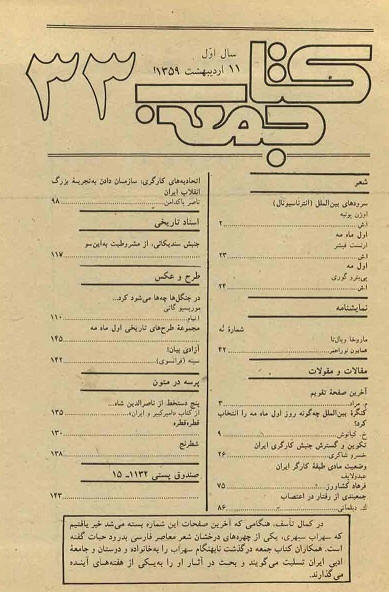 کتاب جمعه
۳۳
سال اول
۱۱ اردیبهشت ۱۳۵۹
شعر
سرودهای بین‌الملل (انترناسیونال)
اوژن پوتیه
ا.ش ۲
اول ماه مه
ارنست فیشر
ا.ش ۲۳
اول مه
پی‌یترو گوری
ا.ش ۲۴
نمایشنامه
شماره نُه
ماروخا ویالتا
همایون نوراحمر ۴۲
مقالات و مقولات
آخرین صفحهٔ تقویم
م. مراد ۳
کنگرهٔ بین‌الملل چه‌گونه روز اول ماه مه را انتخاب
کرد؟
خ. کیانوش ۹
تکوین و گسترش جنبش کارگری ایران
خسرو شاکری ۲۶
وضعیت مادی طبقهٔ کارگر ایران
عبدولایف
فرهاد کشاورز ۷۵
جمعبندی از رفتار در اعتصاب
ک. دیلمانی ۸۶
اتحادیه‌های کارگری: سازمان دادن به‌تجربهٔ بزرگ
انقلاب ایران
ناصر پاکدامن ۹۸
اسناد تاریخی
جنبش سندیکائی، از مشروطیت به‌این‌سو
۱۱۷
طرح و عکس
در جنگل‌ها چه‌ها می‌شود کرد...
موریسیو گاتی
۱۱۰
مجموعهٔ طرح‌های تاریخی اول ماه مه
۱۴۵
آزادی بیان!
سینه (فرانسوی) ۱۴۲
پرسه در متون
پنج دستخط از ناصرالدین شاه...
از کتاب «امیرکبیر و ایران» ۱۳۵
قطره‌قطره
۱۳۰
شطرنج
۱۳۸
صندوق پستی ۱۱۳۲ـ ۱۵
۱۴۳
در کمال تأسف، هنگامی که آخرین صفحات این شماره بسته می‌شد خبر یافتیم
که سهراب سپهری، یکی از چهره‌های درخشان شعر معاصر فارسی بدرود حیات گفته
است. همکاران کتاب جمعه درگذشت نابهنگام سهراب را به‌خانواده و دوستان و جامعهٔ
ادبی ایران تسلیت می‌گویند و بحث در آثار او را به‌یکی از هفته‌های آینده
می‌گذارند.